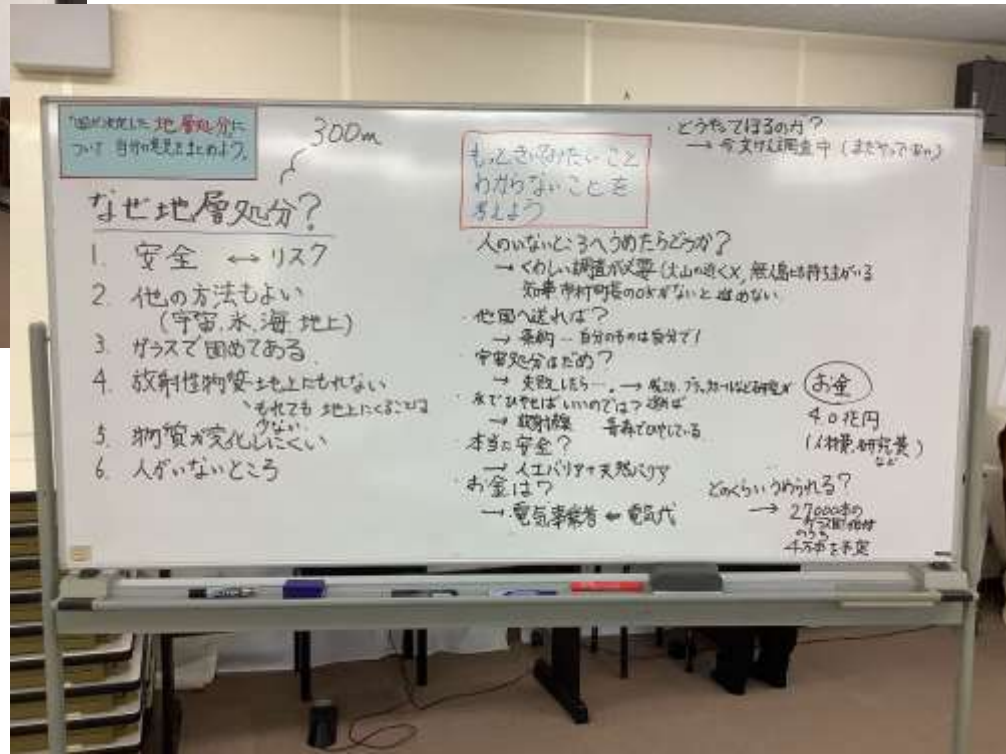 国が決定した地層処分に
ついて 自分の意見をまとめよう。
300m
なぜ地層処分?
1. 安全 ↔ リスク
2. 他の方法もよい
(宇宙、氷、海、地上)
3. ガラスで固めてある
4. 放射性物質 地上にもれない
もれても 地上にくることは
少ない
5. 物質が変化しにくい
6. 人がいないところ
もっとききたいこと
わからないことを
考えよう
・どうやってほるのか?
→ 今 調査中 (まだやってない)
・人のいないところへうめたらどうか?
→ くわしい調査が必要 (火山の近く×, 無人島にも持ち主がいる
知事 市町村長のOKがないと進めない
・他国へ送れば?
→ 条約‥自分のものは自分で!
・宇宙処分はだめ?
→ 失敗したら…。→
・氷でひやせばいいのでは?
→ 青森でひやしている
・本当に安全?
→ 人工バリア+天然バリア
・お金は?
→ 電気事業者 ← 電気代
お金
4.0兆円
(人材費、研究費)
など
どのくらいうめられる?
→ 27000本の
のうち
4万本を予定